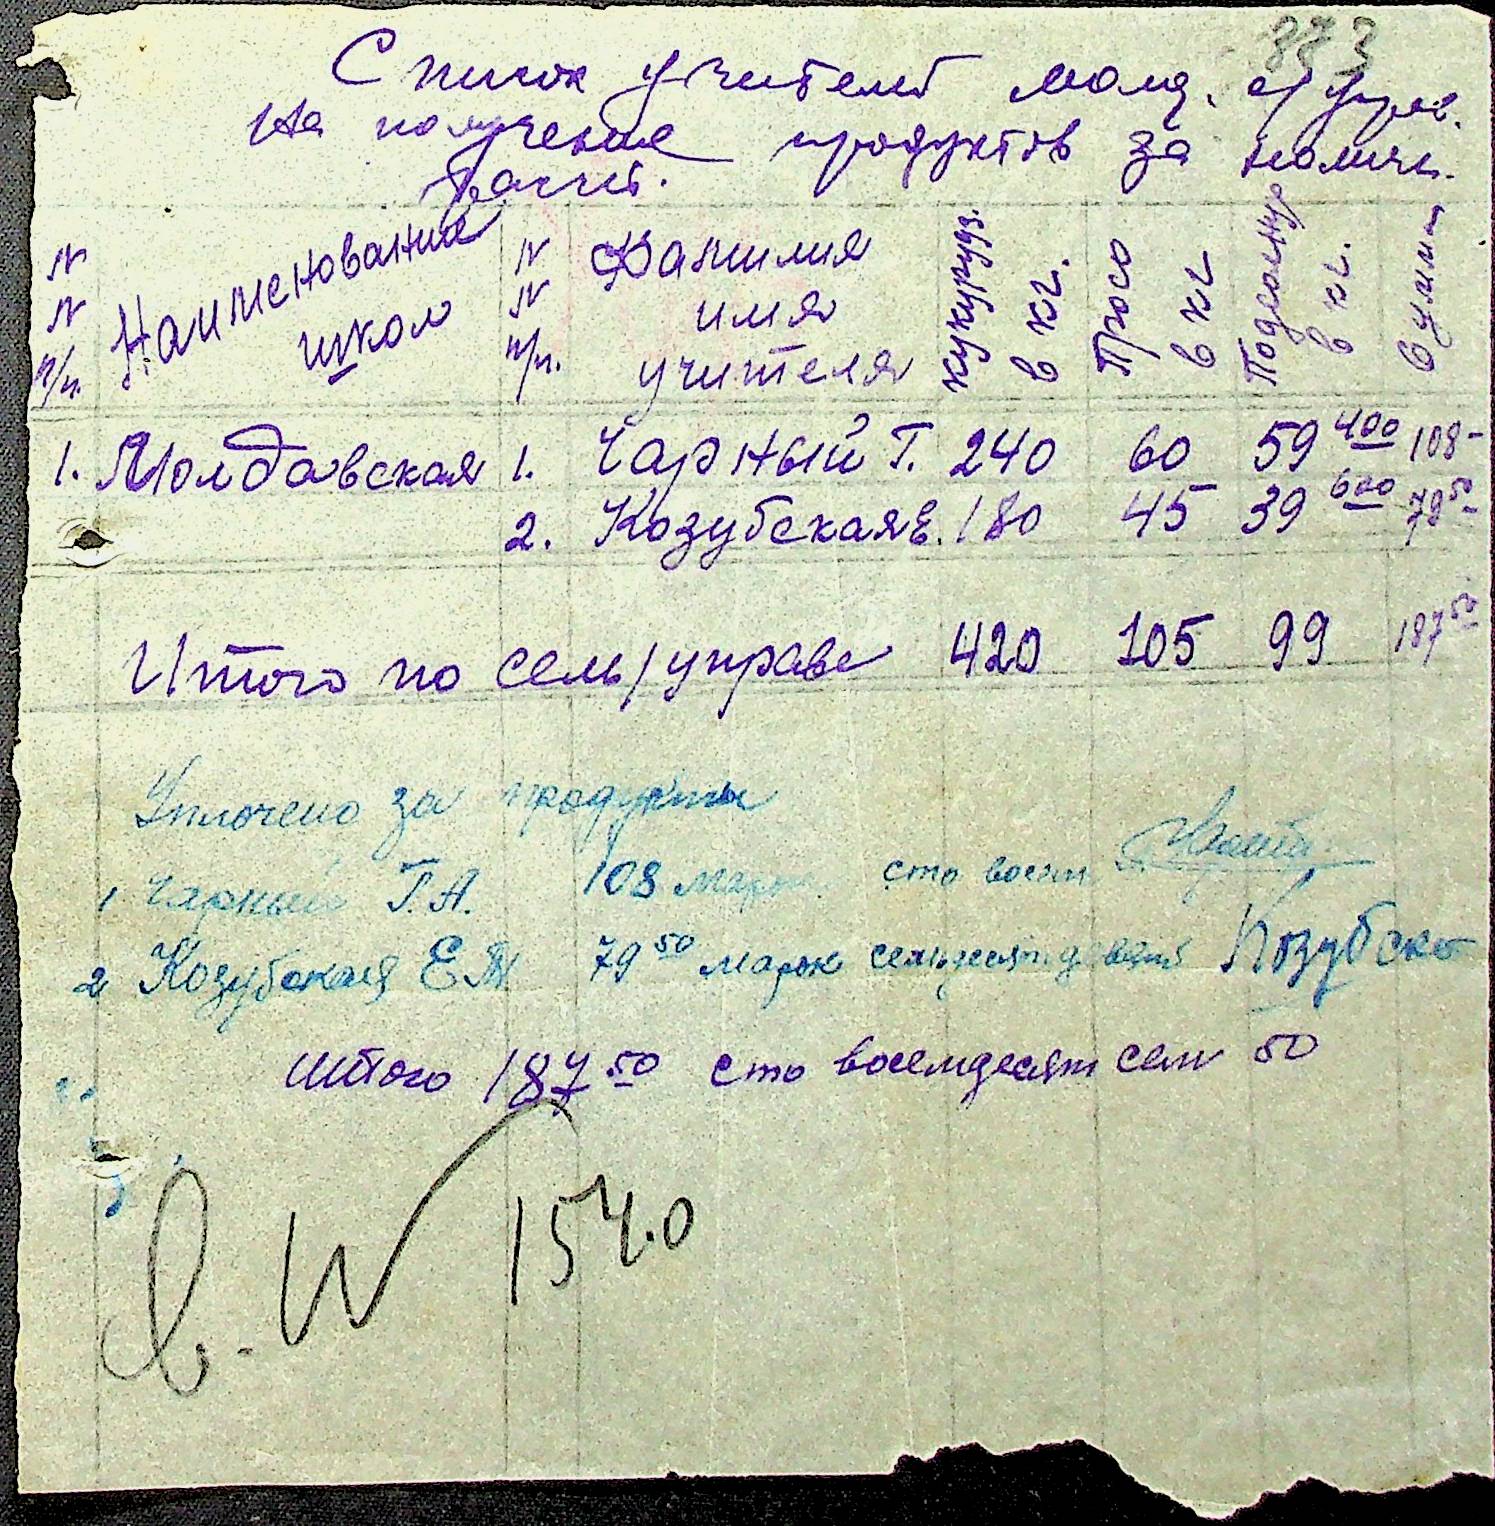 873
Список учителей молд. с/управ.
На получение продуктов за наличн.
расчет.
N N п/п. Наименование школ N N п/п. Фамилия имя учителя кукуруз. в кг. Просо в кг Подсолнух в кг. Сумма
1. Молдавская 1. Чарный Г. 240 60 59 400 108-
2. Козубская Е. 180 45 39 600 79 50
Итого по сель/управе 420 105 99 187 50
Уплочено за продукты
1 Чарный Г.А. 108 марок сто восем
2 Козубская Е М 79 50 марок семьдесят девять Козубско
Итого 187 50 сто восемдесят сем 50
154.0